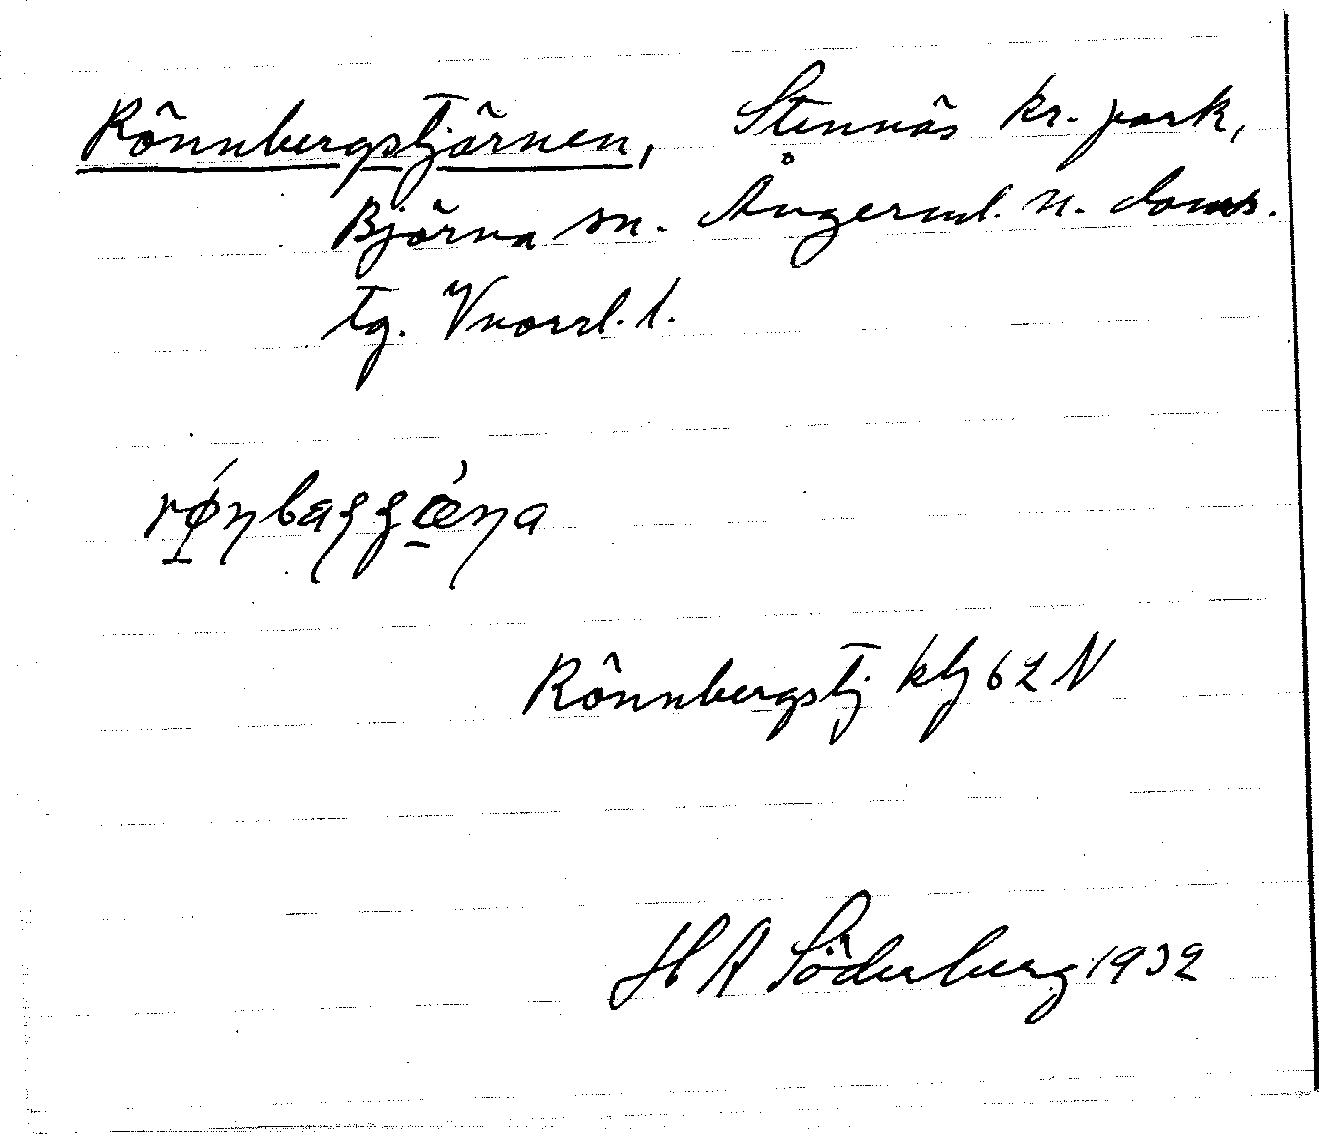 Rönnbergstjärnen, Stennäs kr. park,
Björna sn. Ångerml. n. doms.
tg. Vnorrl. l.
Rönnbergstj klj 62 N
H A Söderberg 1932